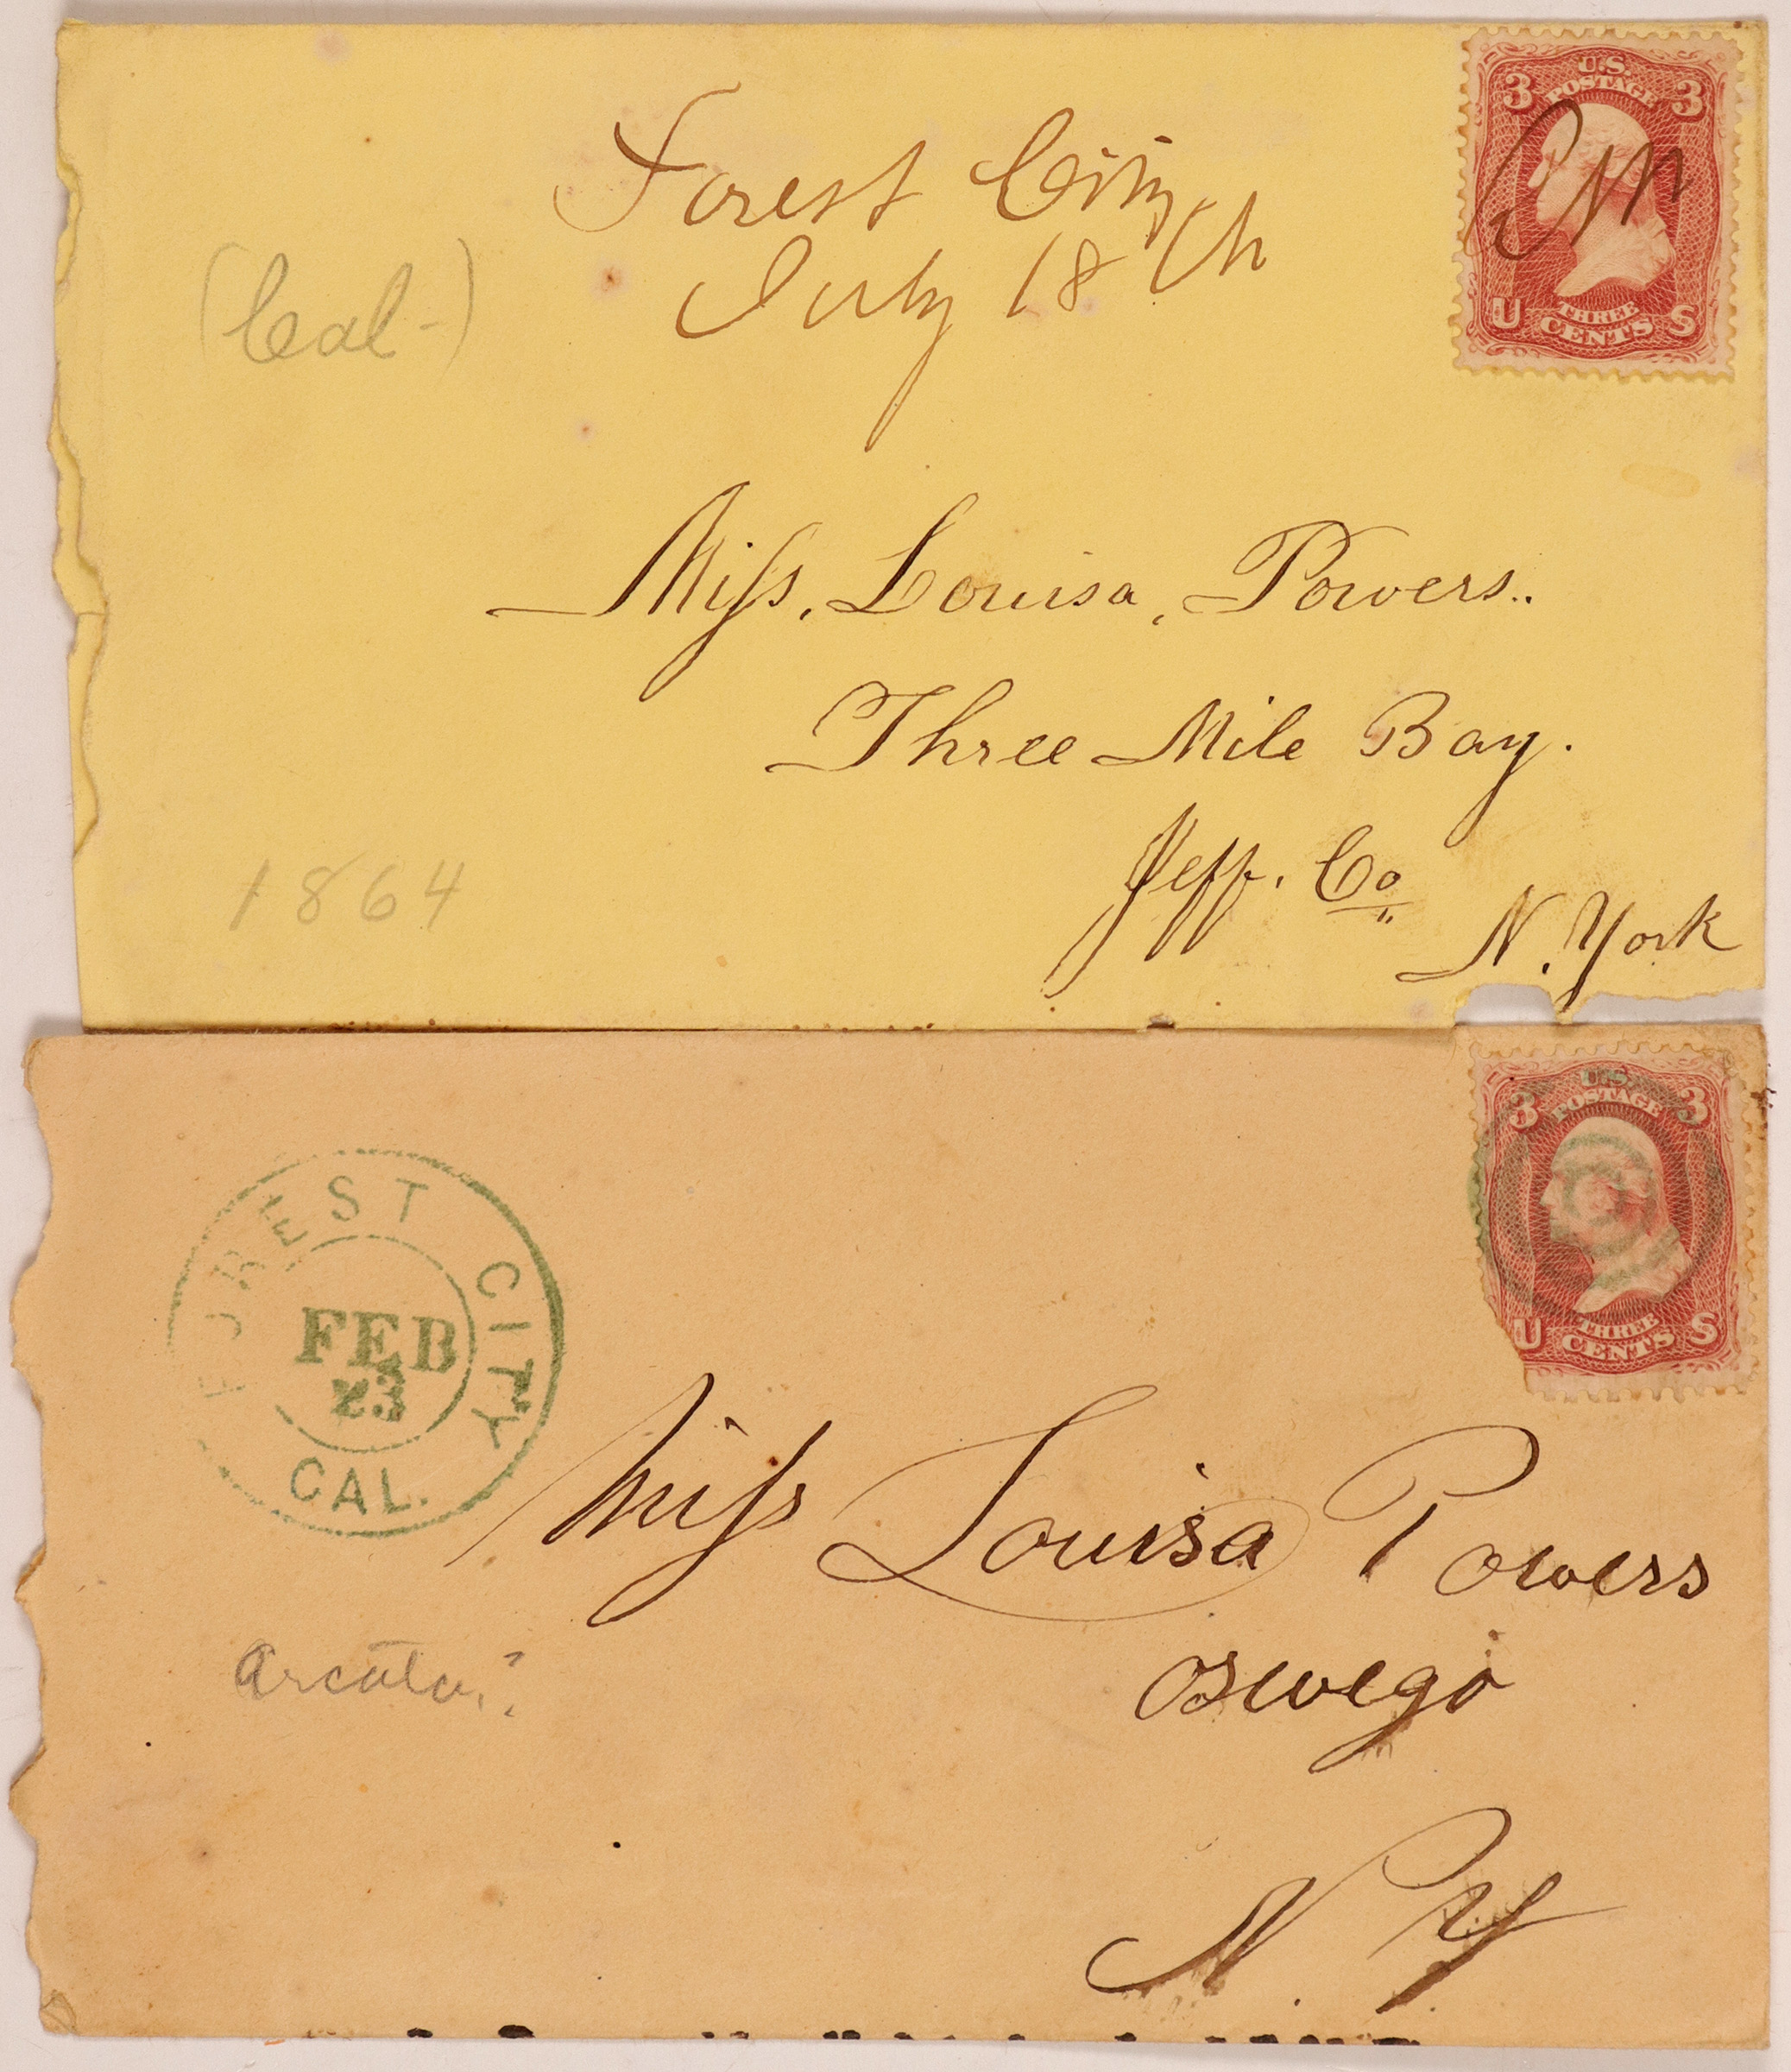 U.S.
POSTAGE
3 3
U THREE S
CENTS
Forest City
July 18th
(Cal-)
Miss. Louisa, Powers..
Three Mile Bay.
Jeff. Co
N. York
1864
U.S.
POSTAGE
3 3
U THREE S
CENTS
FOREST CITY
FEB
23
CAL.
Miss Louisa Powers
Oswego
N. Y